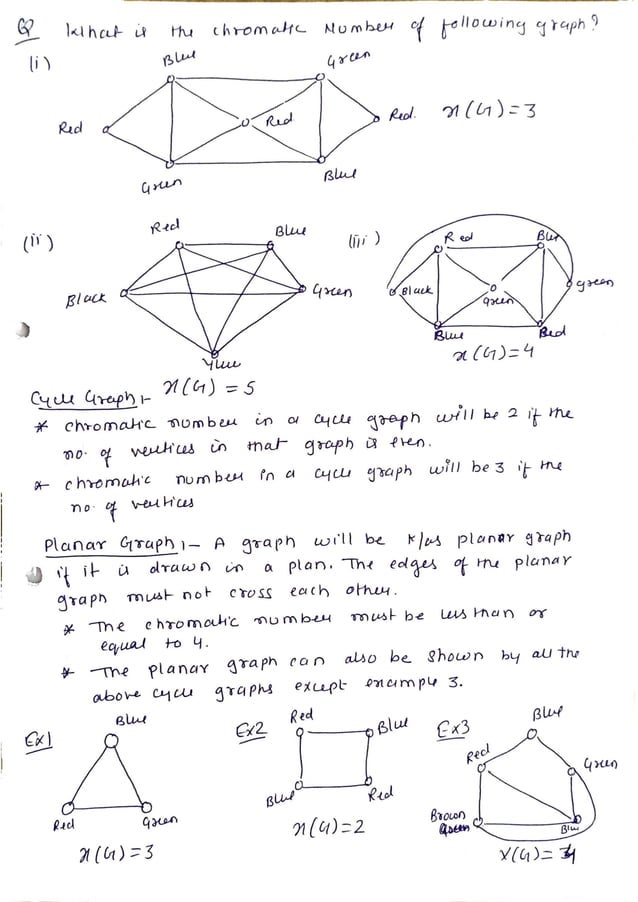 Q What is the chromatic Number of following graph?
(i)
Blue
Green
Red
Red
Red.
Green
Blue
χ(G) = 3
(ii)
Red
Blue
Black
Green
χ(G) = 5
(iii)
Red
Blue
Black
Green
Green
Blue
Red
χ(G) = 4
Cycle Graph :-
* chromatic number in a cycle graph will be 2 if the
no. of vertices in that graph is even.
* chromatic number in a cycle graph will be 3 if the
no. of vertices
Planar Graph :- A graph will be k/as planar graph
if it is drawn in a plan. The edges of the planar
graph must not cross each other.
* The chromatic number must be less than or
equal to 4.
* The planar graph can also be shown by all the
above cycle graphs except example 3.
Ex1
Blue
Red
Green
χ(G) = 3
Ex2
Red
Blue
Blue
Red
χ(G) = 2
Ex3
Blue
Red
Green
Brown
Green
Blue
χ(G) = 4